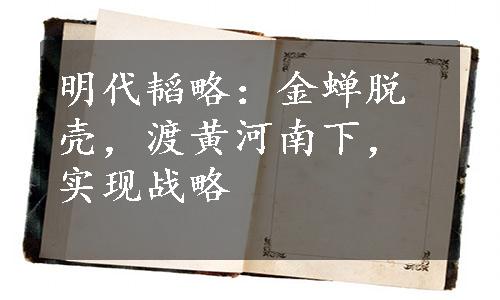 明代韬略：金蝉脱
壳，渡黄河南下，
实现战略